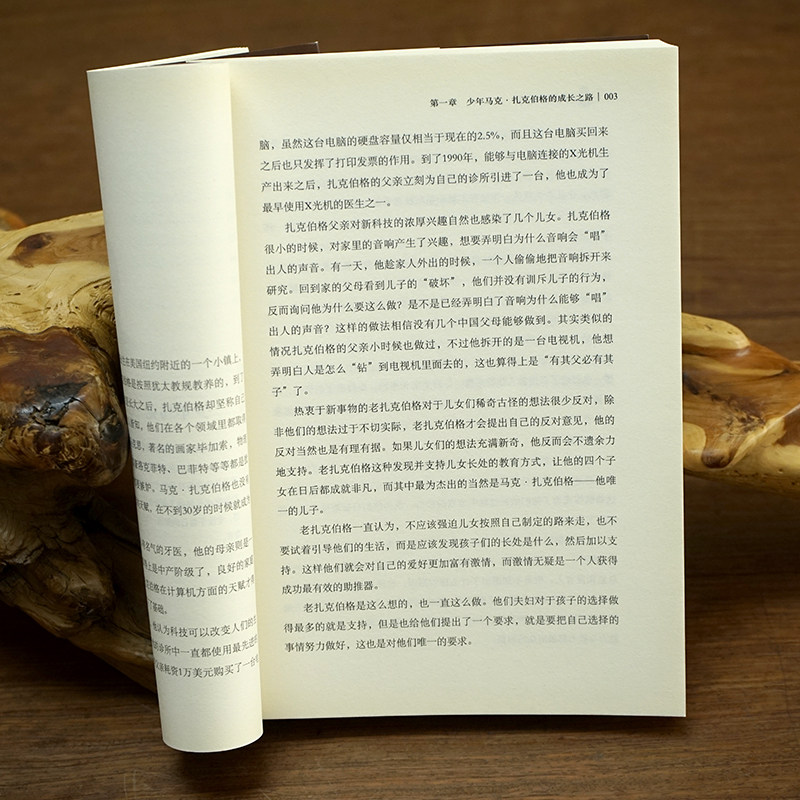 住在美国纽约附近的一个小镇上。
格是按照犹太教规教养的，到了
长大之后，扎克伯格却坚称自己
知，他们在各个领域里都取得
思、著名的画家毕加索，物理
洛克菲特、巴菲特等等都是如
嫉妒。马克·扎克伯格也没有
天赋，在不到30岁的时候就成为
名气的牙医，他的母亲则是一
上是中产阶级了，良好的家庭
伯格在计算机方面的天赋才得
了基础。
他认为科技可以改变人们的生
诊所中一直都使用最先进的
亲耗资1万美元购买了一台电
第一章 少年马克·扎克伯格的成长之路 | 003
脑，虽然这台电脑的硬盘容量仅相当于现在的2.5%，而且这台电脑买回来
之后也只发挥了打印发票的作用。到了1990年，能够与电脑连接的X光机生
产出来之后，扎克伯格的父亲立刻为自己的诊所引进了一台，他也成为了
最早使用X光机的医生之一。
扎克伯格父亲对新科技的浓厚兴趣自然也感染了几个儿女。扎克伯格
很小的时候，对家里的音响产生了兴趣，想要弄明白为什么音响会“唱”
出人的声音。有一天，他趁家人外出的时候，一个人偷偷地把音响拆开来
研究。回到家的父母看到儿子的“破坏”，他们并没有训斥儿子的行为，
反而询问他为什么要这么做？是不是已经弄明白了音响为什么能够“唱”
出人的声音？这样的做法相信没有几个中国父母能够做到。其实类似的
情况扎克伯格的父亲小时候也做过，不过他拆开的是一台电视机，他想
弄明白人是怎么“钻”到电视机里面去的，这也算得上是“有其父必有其
子”了。
热衷于新事物的老扎克伯格对于儿女们稀奇古怪的想法很少反对，除
非他们的想法过于不切实际，老扎克伯格才会提出自己的反对意见，他的
反对当然也是有理有据。如果儿女们的想法充满新奇，他反而会不遗余力
地支持。老扎克伯格这种发现并支持儿女长处的教育方式，让他的四个子
女在日后都成就非凡，而其中最为杰出的当然是马克·扎克伯格——他唯
一的儿子。
老扎克伯格一直认为，不应该强迫儿女按照自己制定的路来走，也不
要试着引导他们的生活，而是应该发现孩子们的长处是什么，然后加以支
持。这样他们就会对自己的爱好更加富有激情，而激情无疑是一个人获得
成功最有效的助推器。
老扎克伯格是这么想的，也一直这么做。他们夫妇对于孩子的选择做
得最多的就是支持，但是也给他们提出了一个要求，就是要把自己选择的
事情努力做好，这也是对他们唯一的要求。